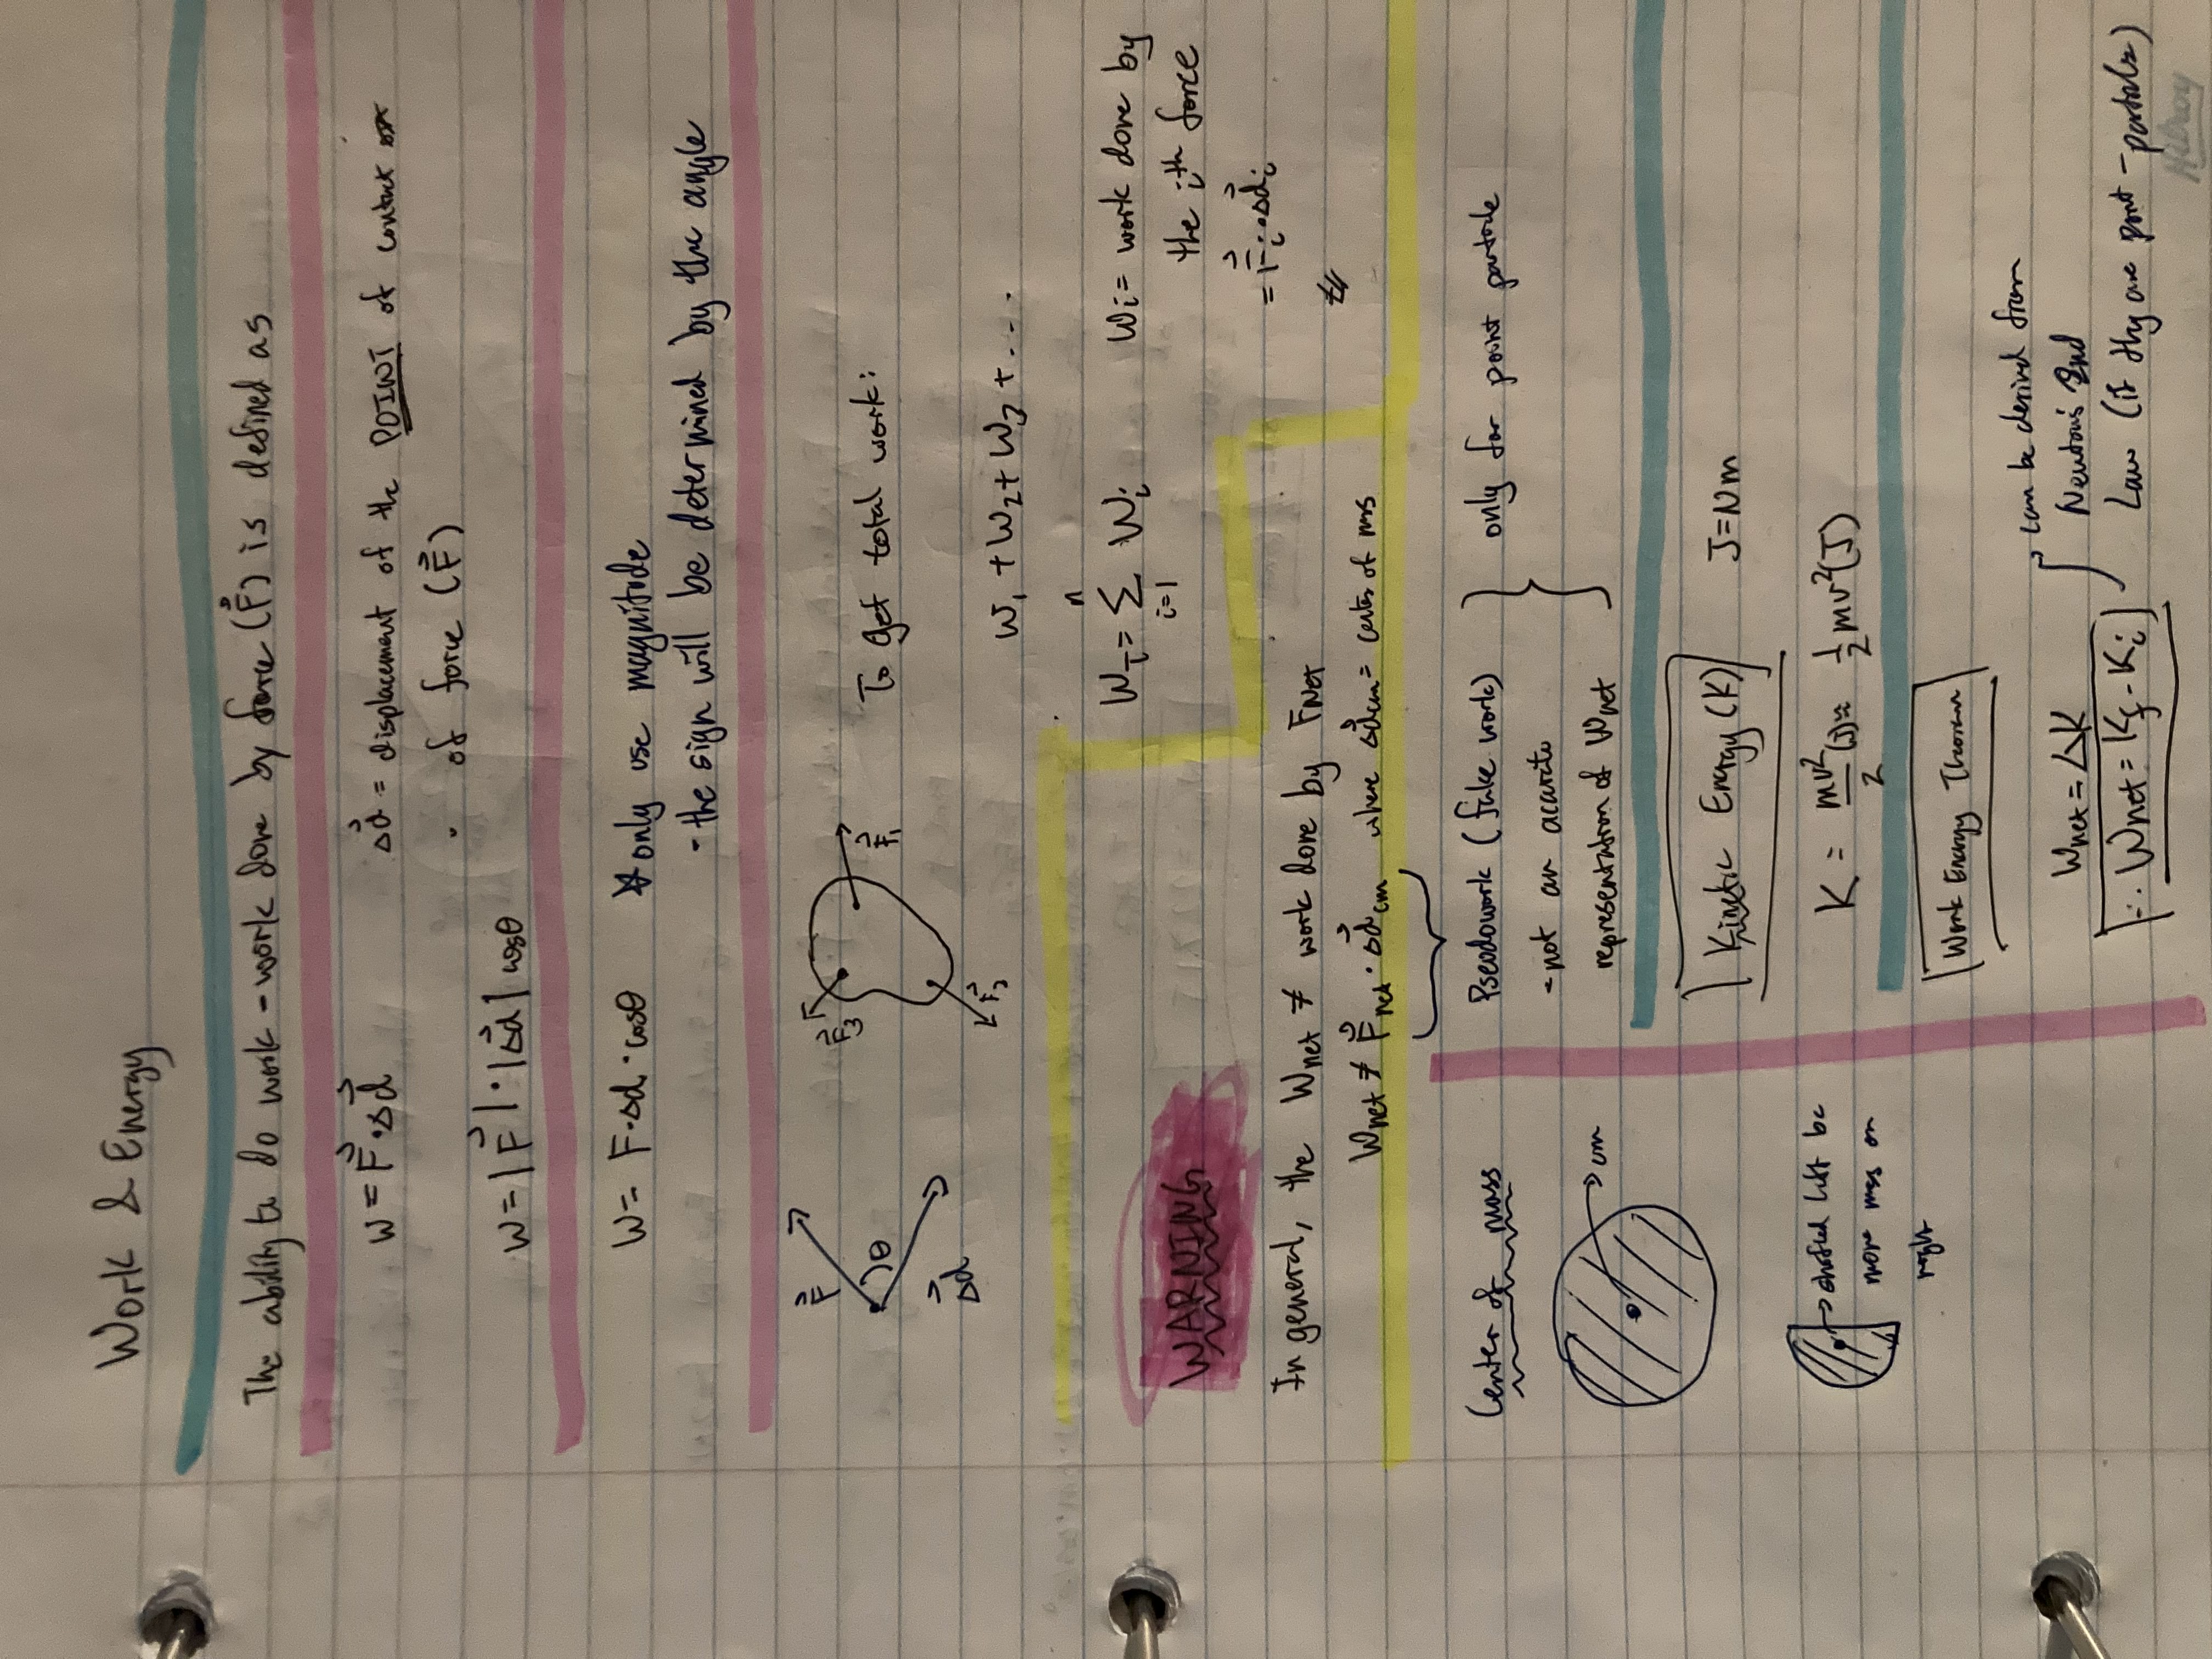 Work & Energy
The ability to do work - work done by force (F⃗) is defined as
W = F⃗ · Δd⃗
Δd⃗ = displacement of the POINT of contact
of force (F⃗)
W = |F⃗| · |Δd⃗| cosθ
W = F·Δd·cosθ
* only use magnitude
- the sign will be determined by the angle
F⃗
θ
Δd⃗
F⃗₃
F⃗₁
F⃗₂
To get total work:
W₁ + W₂ + W₃ + ....
n
W_T = Σ Wi
i=1
Wi = work done by
the iᵗʰ force
= F⃗i · Δd⃗i
WARNING
In general, the Wnet ≠ work done by FNet
Wnet ≠ F⃗net · Δd⃗cm where Δd⃗cm = center of mass
Center of mass
cm
shifted left bc
more mass on
right
Pseodowork (fake work)
- not an acurate
representation of Wnet
only for point particle
Kinetic Energy (K)
J = Nm
K = mv²/2 (J) = ½mv² (J)
Work Energy Theorem
Wnet = ΔK
∴ Wnet = Kf - Ki
can be derived from
Newton's 2nd
Law (if they are point-particles)
Hilroy